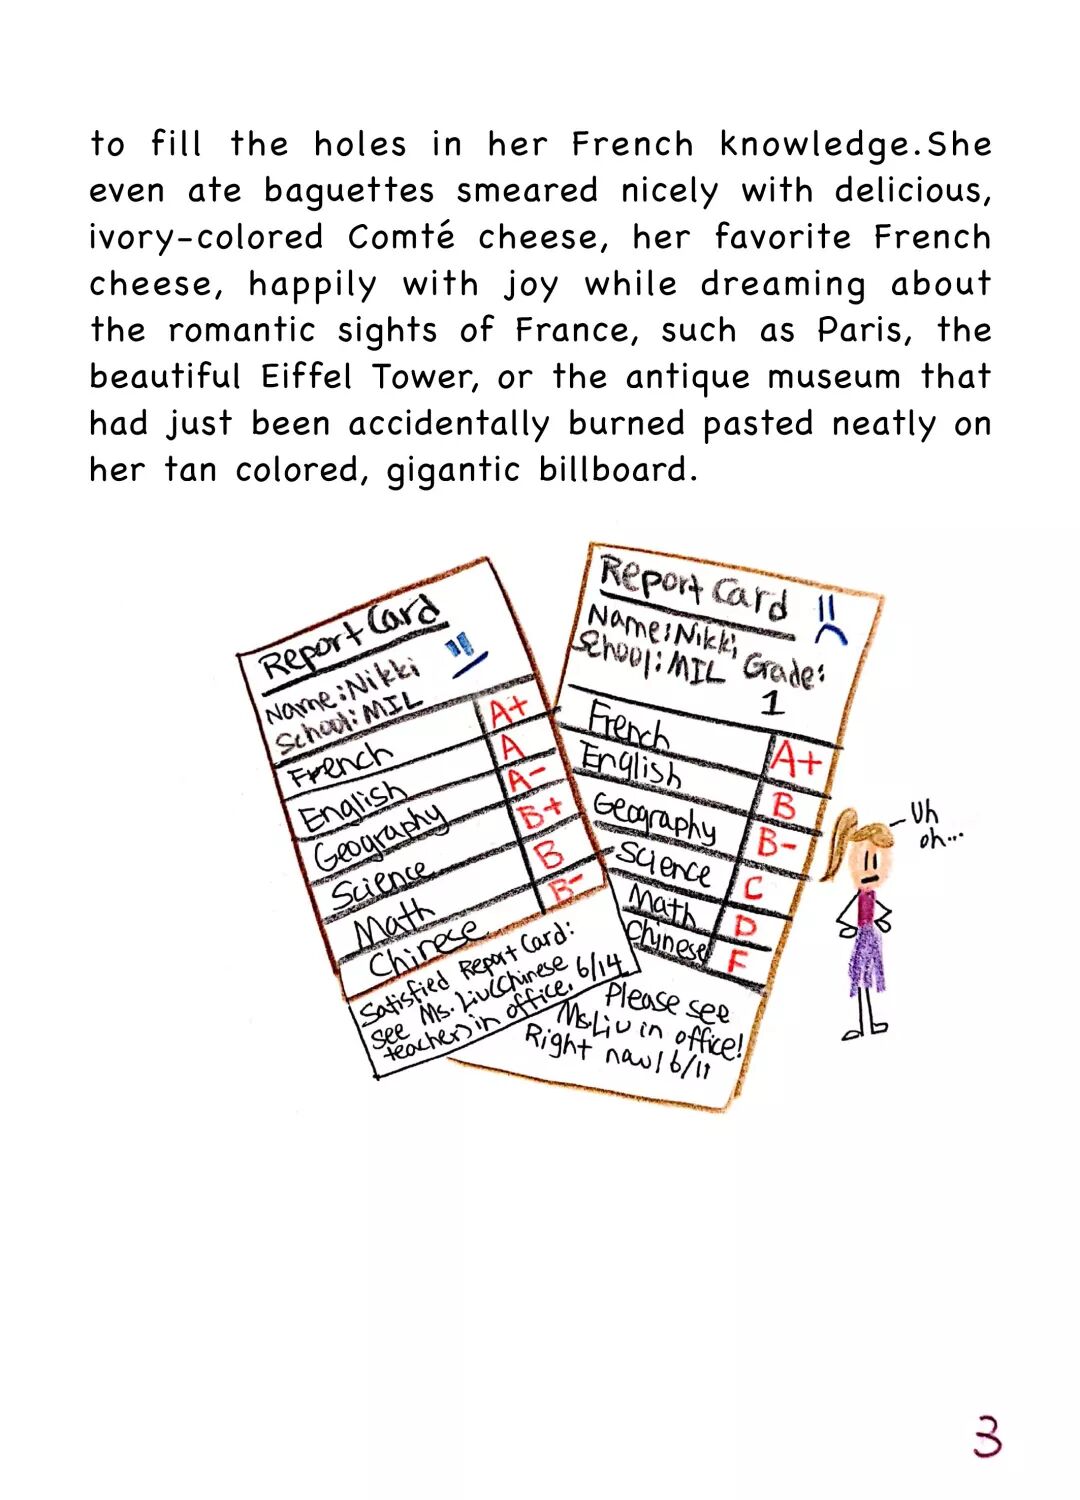 to fill the holes in her French knowledge.She
even ate baguettes smeared nicely with delicious,
ivory-colored Comté cheese, her favorite French
cheese, happily with joy while dreaming about
the romantic sights of France, such as Paris, the
beautiful Eiffel Tower, or the antique museum that
had just been accidentally burned pasted neatly on
her tan colored, gigantic billboard.
Report Card
Name:Nikki
School:MIL
French A+
English A
Geography A-
Science B+
Math B
Chinese B-
Satisfied Report Card:
see Ms. Liu(Chinese 6/14
teacher) in office.
Report Card
Name:Nikki
School:MIL Grade:
1
French A+
English B
Geography B-
Science C
Math D
Chinese F
Please see
Ms.Liu in office!
Right now! 6/11
Uh
oh...
3